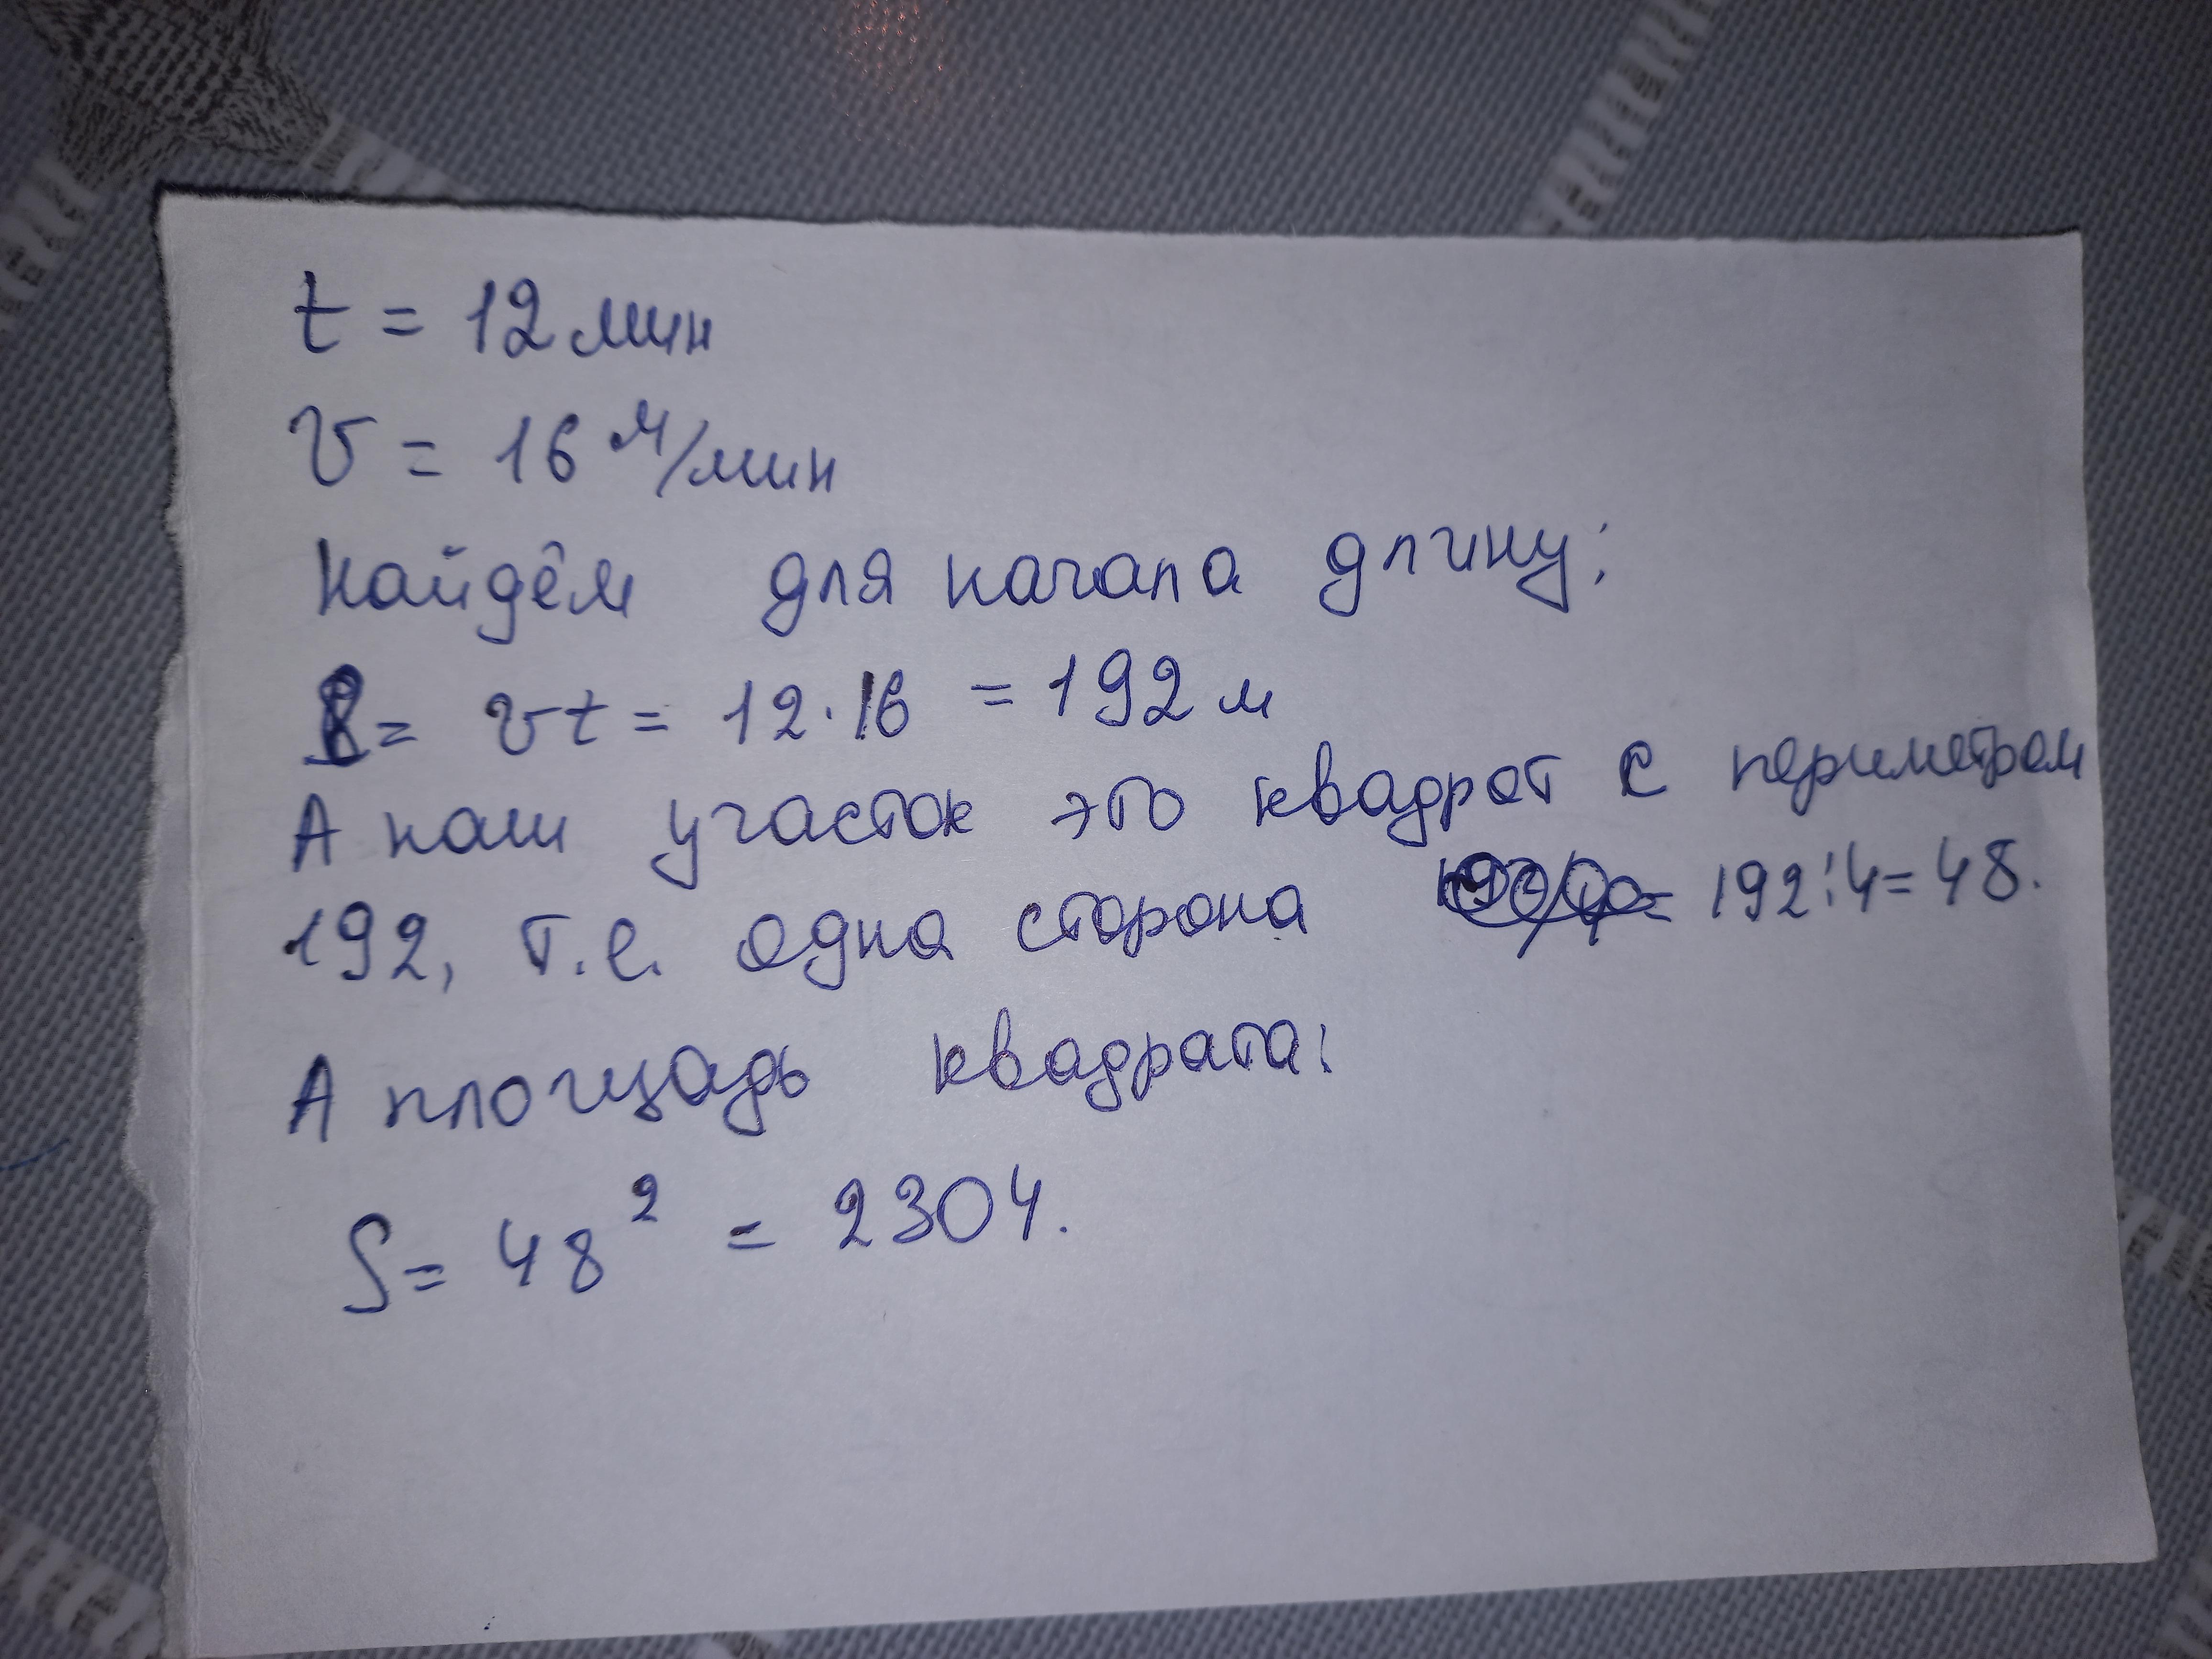 t = 12 мин
v = 16 м/мин
Найдём для начала длину:
= vt = 12·16 = 192 м
А наш участок это квадрат с периметром
192, т.е. одна сторона = 192:4=48.
А площадь квадрата:
S= 48² = 2304.